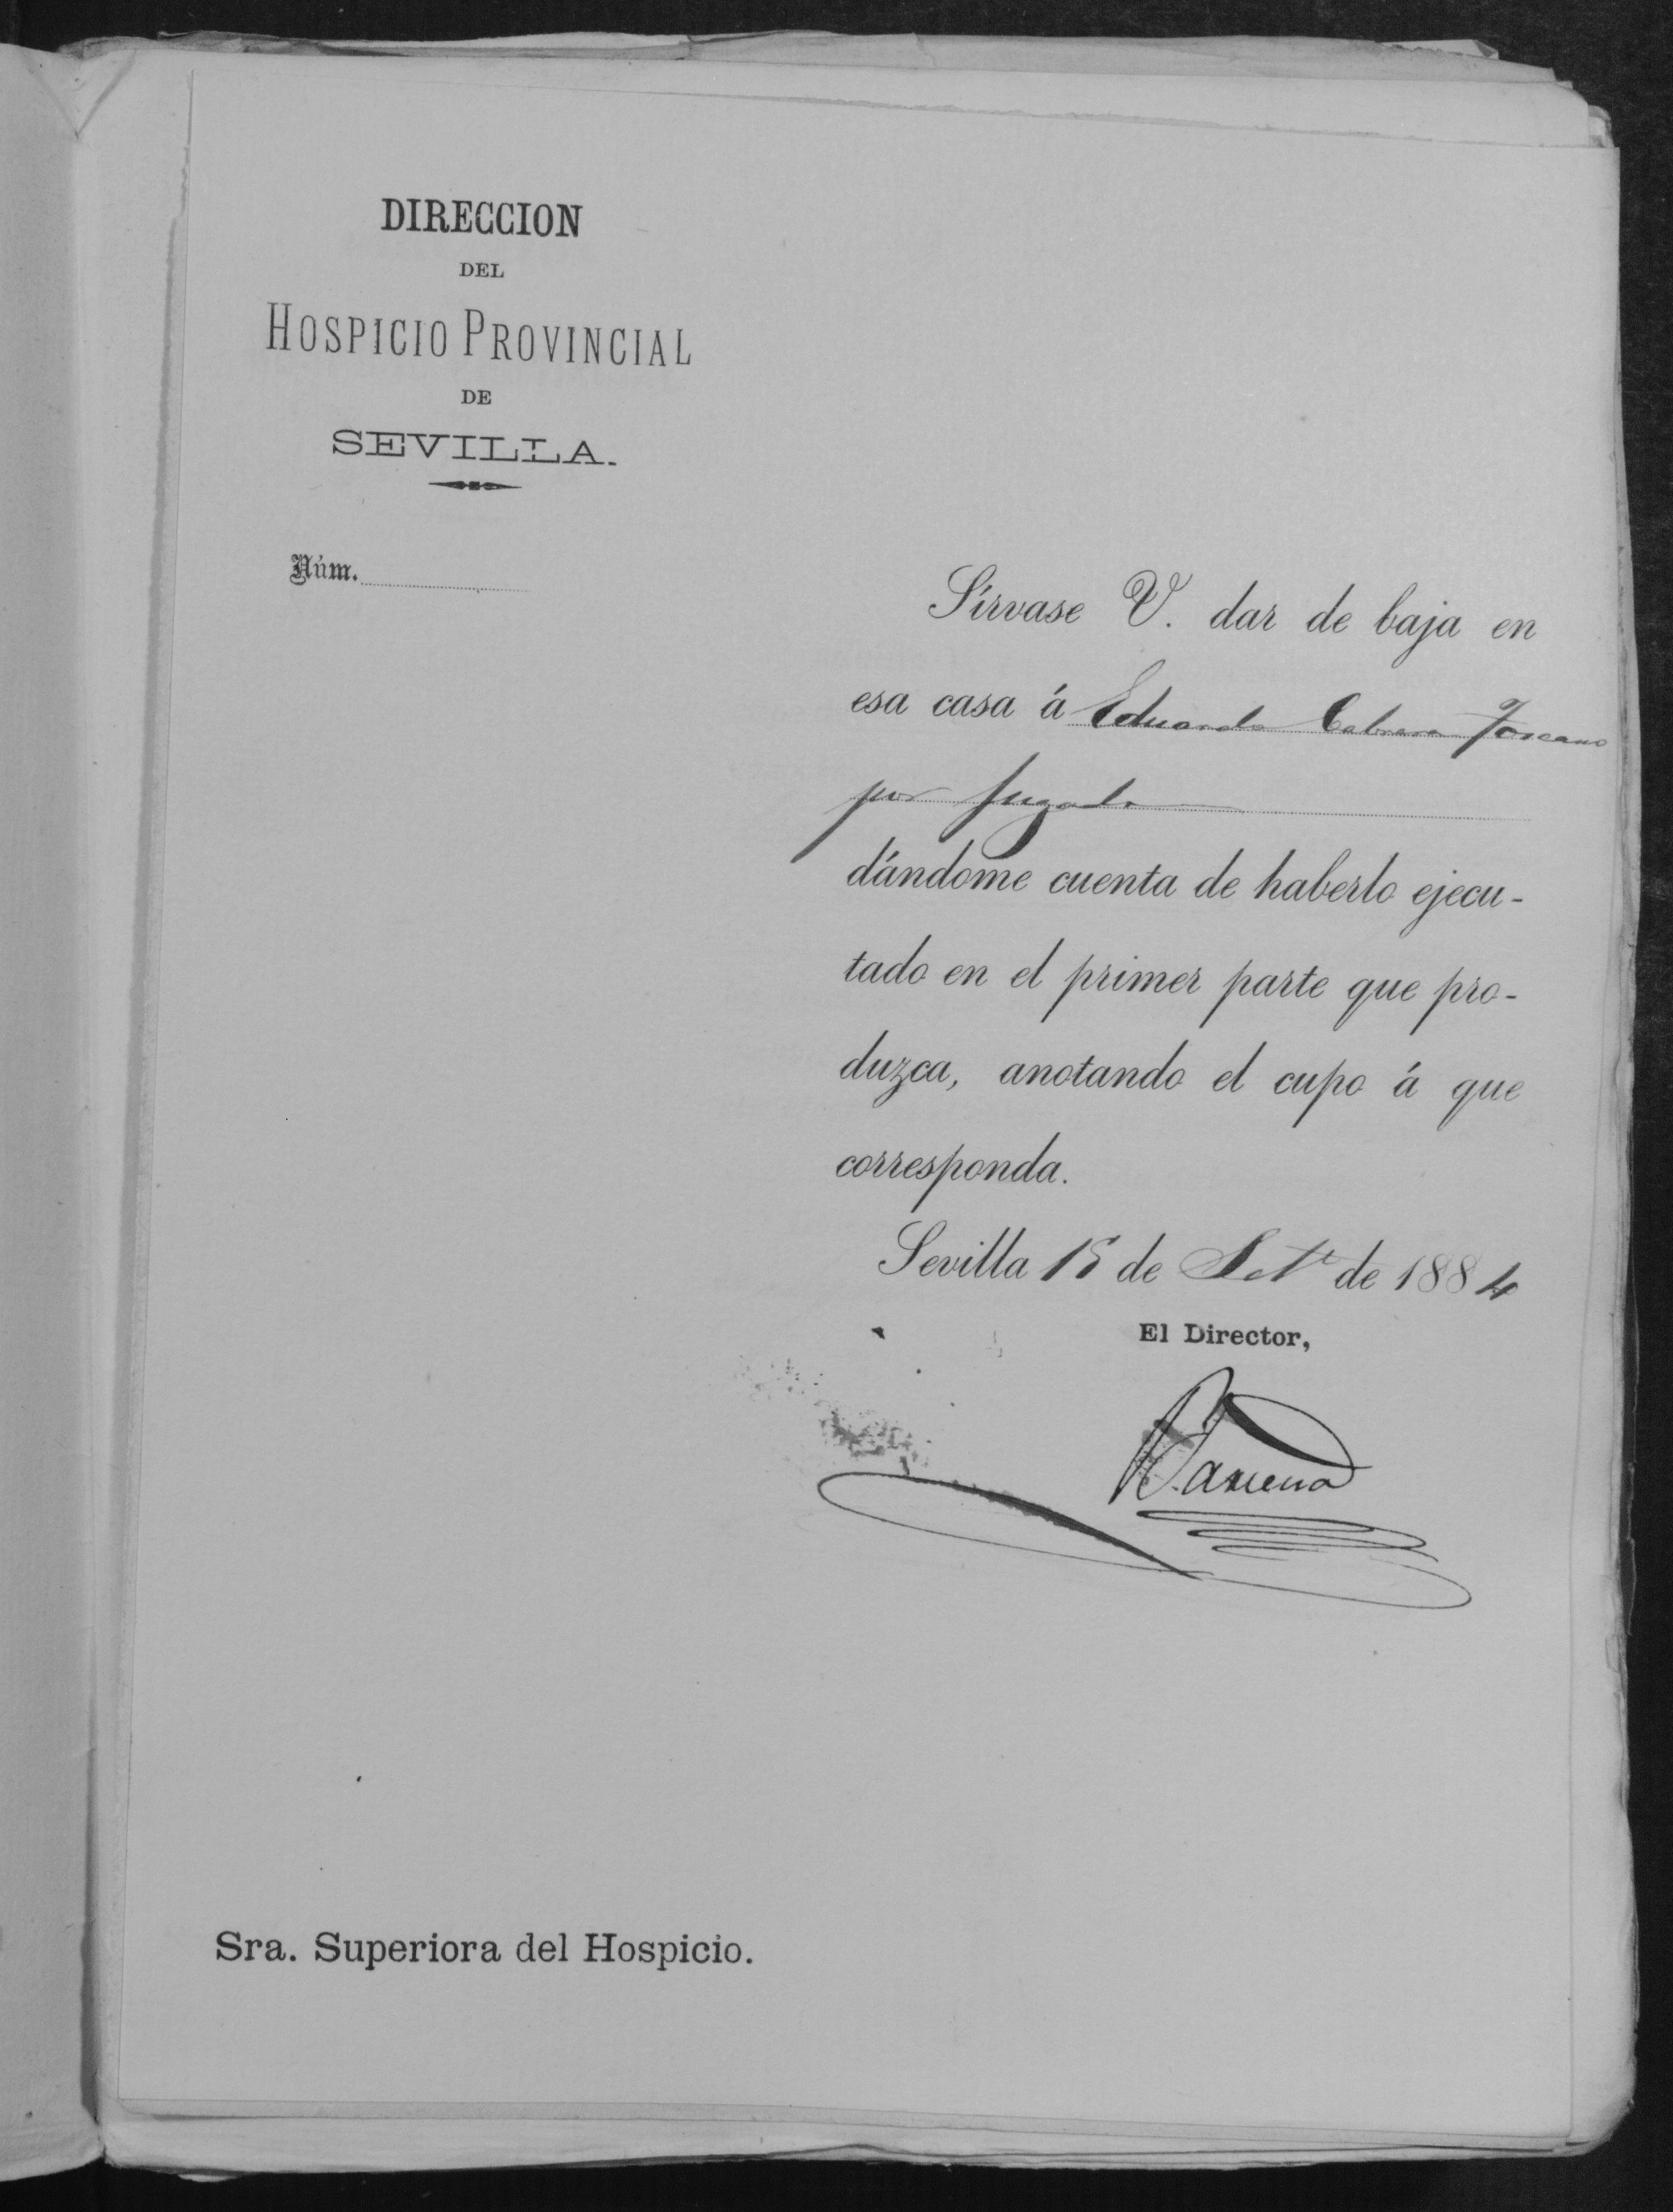 DIRECCION
DEL
HOSPICIO PROVINCIAL
DE
SEVILLA.
Núm.
Sírvase V. dar de baja en
esa casa á Eduardo Cabrera Toscano
por fugado
dándome cuenta de haberlo ejecu-
tado en el primer parte que pro-
duzca, anotando el cupo á que
corresponda.
Sevilla 15 de Set.e de 1884
El Director,
Sra. Superiora del Hospicio.